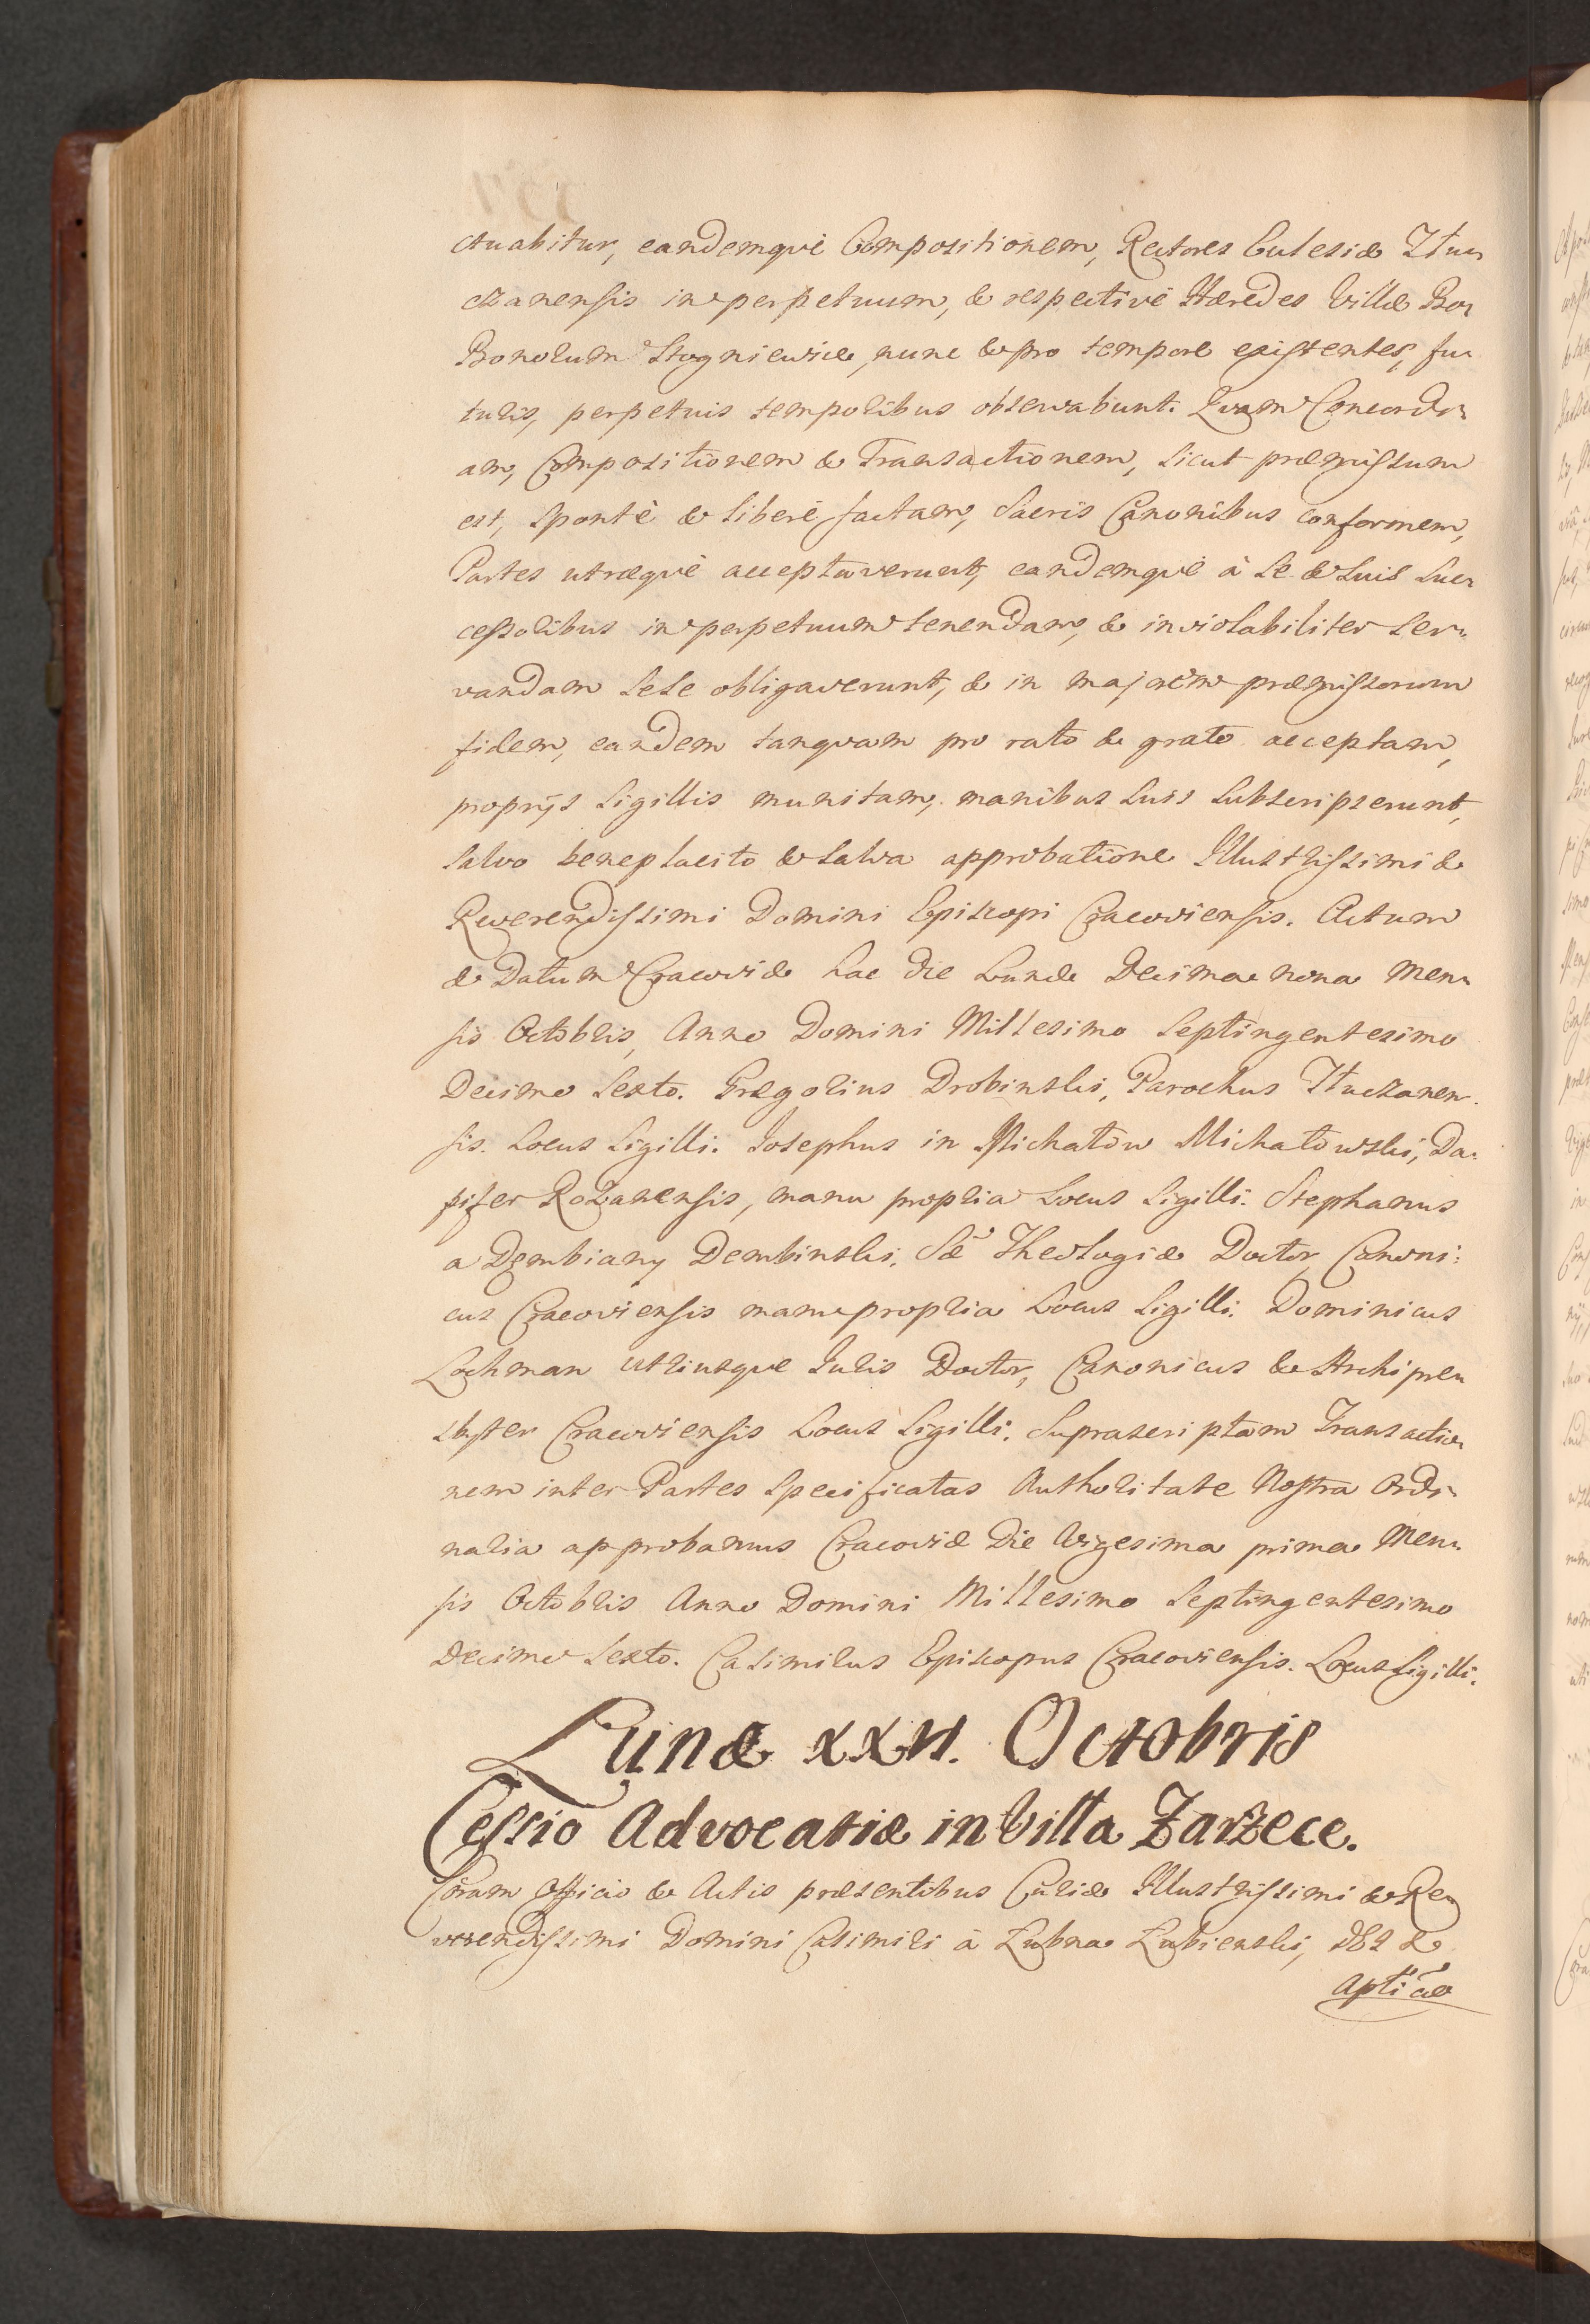 ctuabitur, eandemqvè Compositionem, Rectores Ecclesiæ Tłu-
czanensis in perpetuum, & respectivè Hæredes Villæ Bo-
Bonorum Stogniewice, nunc & pro tempore existentes, fu-
turis, perpetuis temporibus observabunt. Qvam Concordi-
am, Compositionem & Transactionem, sicut præmissum
est, spontè & liberè factam, Sacris Canonibus conformem,
Partes utræqvè acceptaverunt, eandemqvè à se & suis suc-
cessoribus in perpetuum tenendam, & inviolabiliter ser-
vandam sese obligaverunt, & in majorem præmissorum
fidem, eandem tanqvam pro rato & grato acceptam,
proprijs Sigillis munitam, manibus suis subscripserunt,
salvo beneplacito & salva approbatione Illustrissimi &
Reverendissimi Domini Episcopi Cracoviensis. Actum
& Datum Cracoviæ hac die Lunæ Decima nona Men-
sis Octobris, Anno Domini Millesimo Septingentesimo
Decimo Sexto. Grægorius Drobinski, Parochus Tłuczanen-
sis. Locus Sigilli. Josephus in Michałow Michałowski, Da-
pifer Rożanensis, manu propria Locus Sigilli. Stephanus
a Dembiany Dembinski, Sæ Theologiæ Doctor, Canoni-
cus Cracoviensis manu propria Locus Sigilli. Dominicus
Lochman Utriusque Juris Doctor, Canonicus & Archipre-
sbyter Cracoviensis Locus Sigilli. Suprascriptam Transactio-
nem inter Partes Specificatas Authoritate Nostra Ordi-
naria approbamus Cracoviæ Die Vigesima prima Men-
sis Octobris Anno Domini Millesimo Septingentesimo
Decimo Sexto. Casimirus Episcopus Cracoviensis. Locus Sigilli.
Lunæ XXVI. Octobris
Cessio Advocatiæ in Villa Zarzece.
Coram Officio & Actis præsentibus Curiæ Illustrissimi & Re-
verendissimi Domini Casimiri à Łubna Łubienski, DEI &
Apticæ